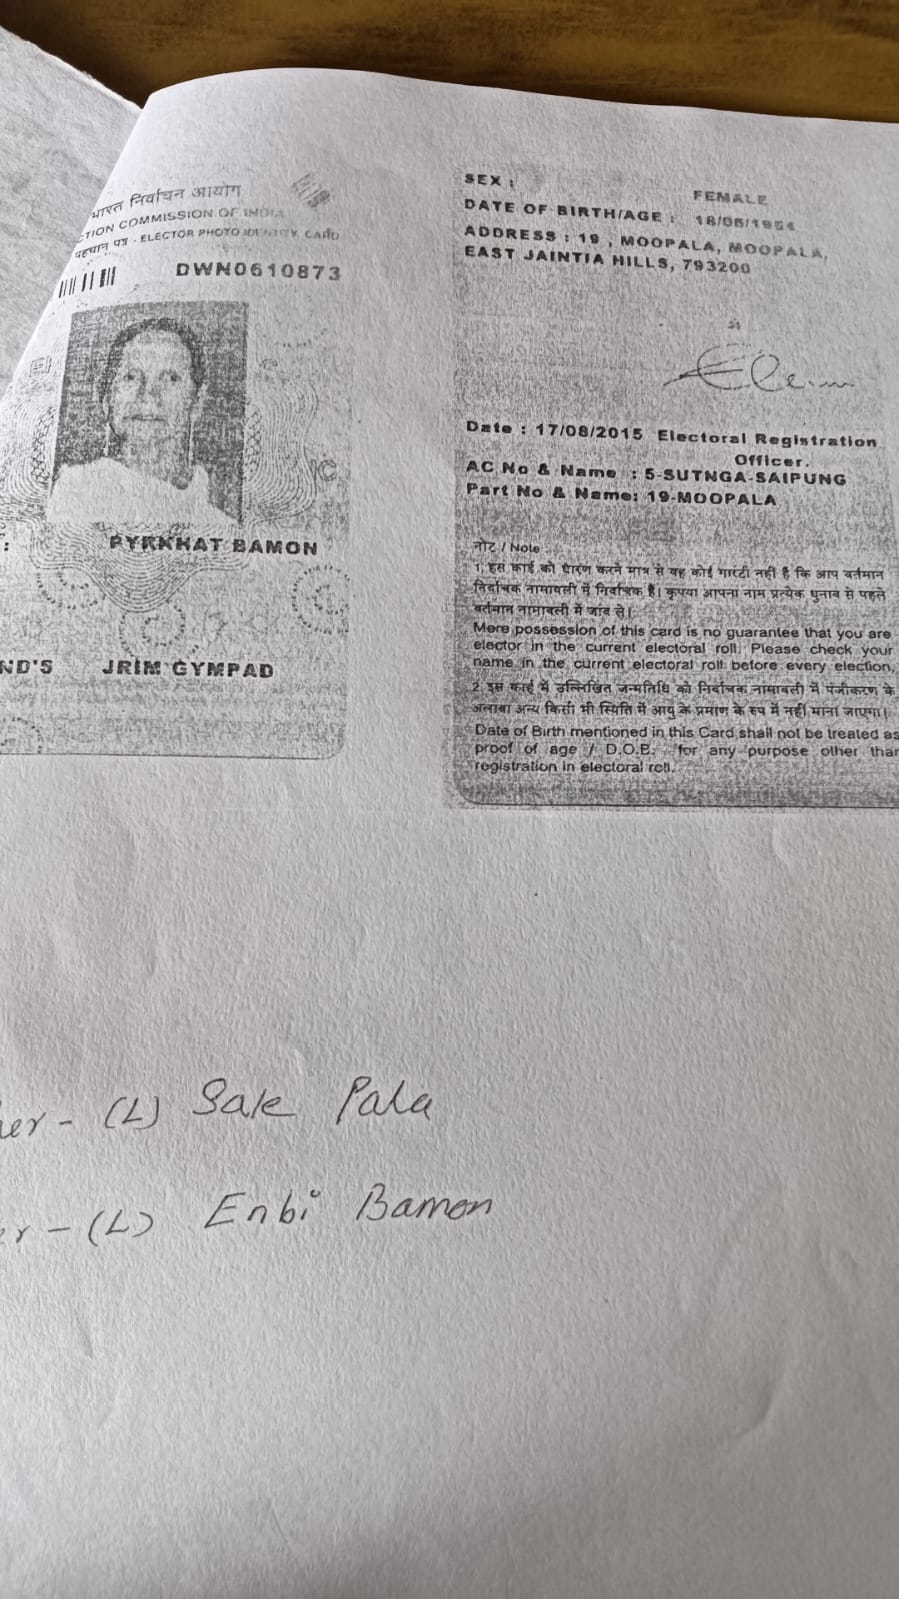 भारत निर्वाचन आयोग
CTION COMMISSION OF INDIA
पहचान पत्र - ELECTOR PHOTO IDENTITY CARD
DWN0610873
: PYRKHAT BAMON
ND'S JRIM GYMPAD
SEX : FEMALE
DATE OF BIRTH/AGE : 18/06/1954
ADDRESS : 19 , MOOPALA, MOOPALA,
EAST JAINTIA HILLS, 793200
Date : 17/08/2015 Electoral Registration
Officer.
AC No & Name : 5-SUTNGA-SAIPUNG
Part No & Name: 19-MOOPALA
नोट / Note :
1. इस कार्ड को धारण करने मात्र से यह कोई गारंटी नहीं है कि आप वर्तमान
निर्वाचक नामावली में निर्वाचक हैं। कृपया आपना नाम प्रत्येक चुनाव से पहले
वर्तमान नामावली में जांच ले।
Mere possession of this card is no guarantee that you are
elector in the current electoral roll. Please check your
name in the current electoral roll before every election.
2. इस कार्ड में उल्लिखित जन्मतिथि को निर्वाचक नामावली में पंजीकरण के
अलावा अन्य किसी भी स्थिति में आयु के प्रमाण के रूप में नहीं माना जाएगा।
Date of Birth mentioned in this Card shall not be treated as
proof of age / D.O.B. for any purpose other than
registration in electoral roll.
her - (L) Sale Pala
er - (L) Enbi Bamon